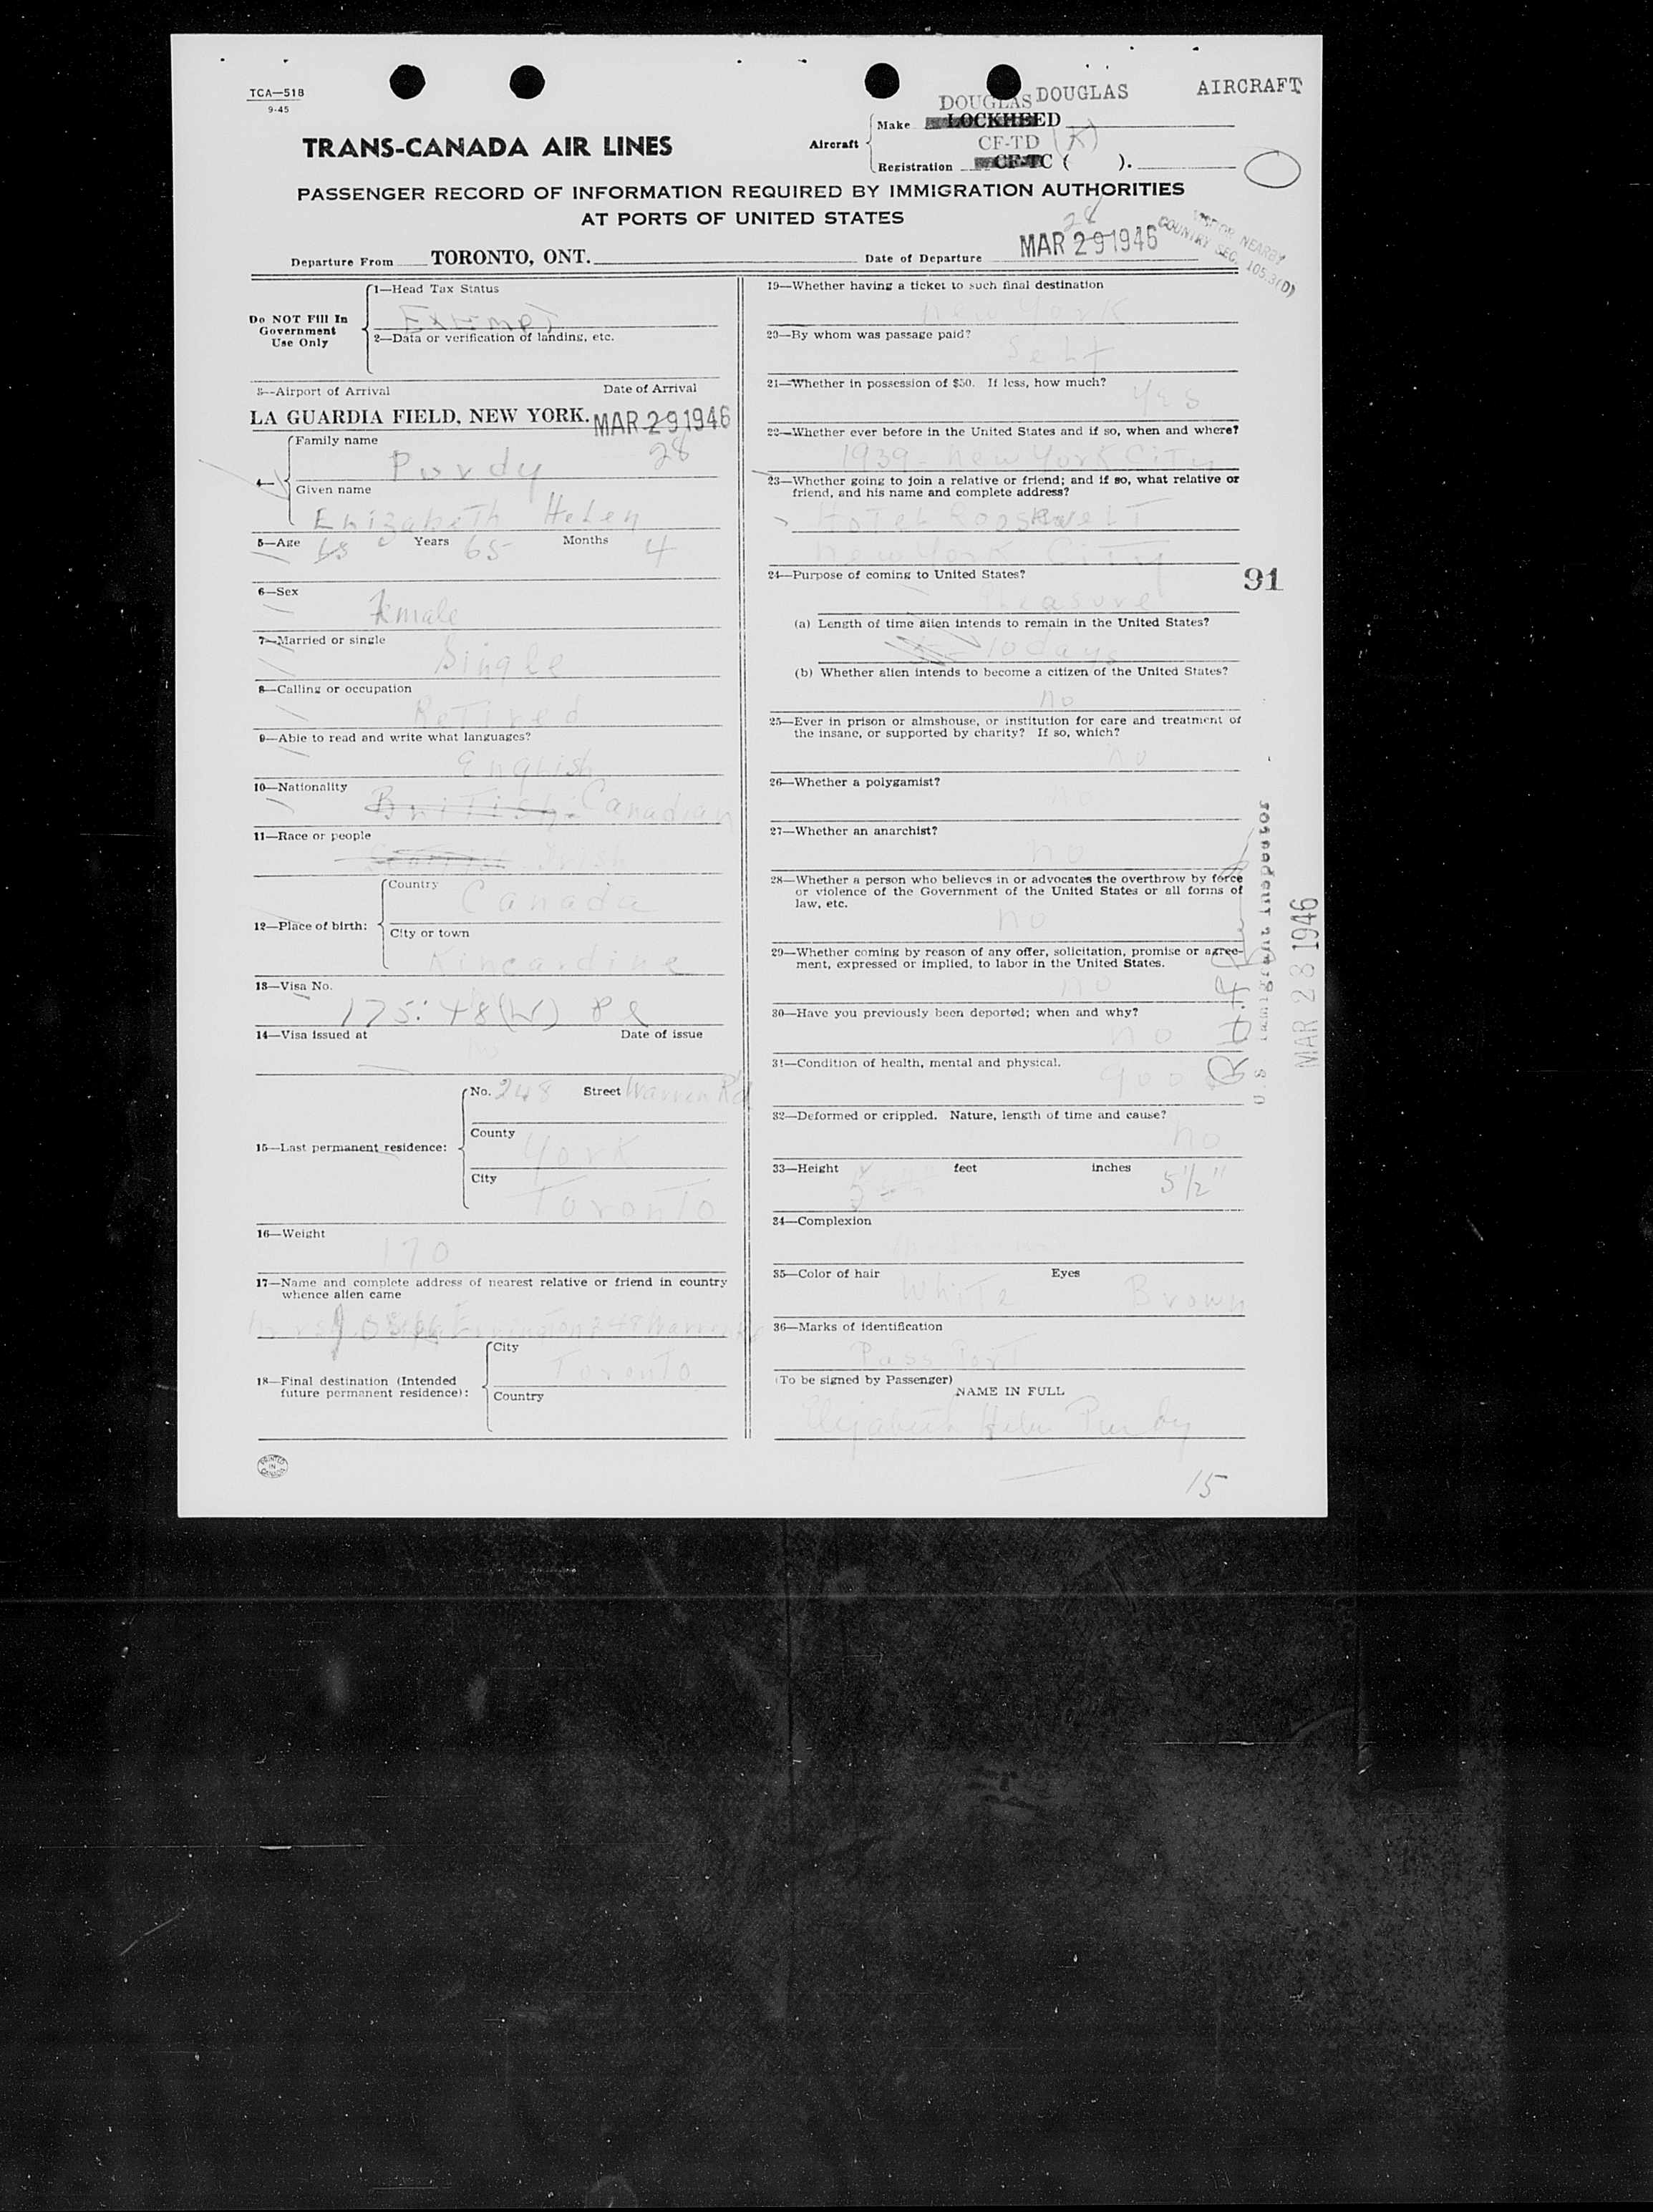 TCA—518
9-45
DOUGLAS DOUGLAS AIRCRAFT
TRANS-CANADA AIR LINES
Aircraft
Make LOCKHEED
CF-TD (K)
Registration CF-TC ( ).
PASSENGER RECORD OF INFORMATION REQUIRED BY IMMIGRATION AUTHORITIES
AT PORTS OF UNITED STATES
28
Departure From TORONTO, ONT. Date of Departure MAR 29 1946
COUNTRY SEC. 105.3(D)
Do NOT Fill In
Government
Use Only
1—Head Tax Status
Exempt
2—Data or verification of landing, etc.
3—Airport of Arrival Date of Arrival
LA GUARDIA FIELD, NEW YORK. MAR 29 1946
28
4—
Family name
Purdy
Given name
Elizabeth Helen
5—Age 65 Years 65 Months 4
6—Sex
Female
7—Married or single
Single
8—Calling or occupation
Retired
9—Able to read and write what languages?
English
10—Nationality
British Canadian
11—Race or people
Irish
12—Place of birth:
Country
Canada
City or town
Kincardine
13—Visa No.
175:48(W)
14—Visa issued at Date of issue
No
15—Last permanent residence:
No. 248 Street Warren Rd
County
York
City
Toronto
16—Weight
170
17—Name and complete address of nearest relative or friend in country
whence alien came
248 Warren
18—Final destination (Intended
future permanent residence):
City
Toronto
Country
PRINTED
IN
CANADA
19—Whether having a ticket to such final destination
New York
20—By whom was passage paid?
Self
21—Whether in possession of $50. If less, how much?
Yes
22—Whether ever before in the United States and if so, when and where?
1939 - New York City
23—Whether going to join a relative or friend; and if so, what relative or
friend, and his name and complete address?
Hotel Roosevelt
New York City
24—Purpose of coming to United States?
Pleasure
91
(a) Length of time alien intends to remain in the United States?
10 days
(b) Whether alien intends to become a citizen of the United States?
no
25—Ever in prison or almshouse, or institution for care and treatment of
the insane, or supported by charity? If so, which?
no
26—Whether a polygamist?
27—Whether an anarchist?
no
28—Whether a person who believes in or advocates the overthrow by force
or violence of the Government of the United States or all forms of
law, etc.
no
29—Whether coming by reason of any offer, solicitation, promise or agree-
ment, expressed or implied, to labor in the United States.
no
30—Have you previously been deported; when and why?
no
31—Condition of health, mental and physical.
good
32—Deformed or crippled. Nature, length of time and cause?
no
33—Height 5 feet inches 5 1/2"
34—Complexion
35—Color of hair White Eyes Brown
36—Marks of identification
Pass Port
(To be signed by Passenger)
NAME IN FULL
Elizabeth Helen Purdy
15
U.S. Immigrant Inspector
MAR 28 1946